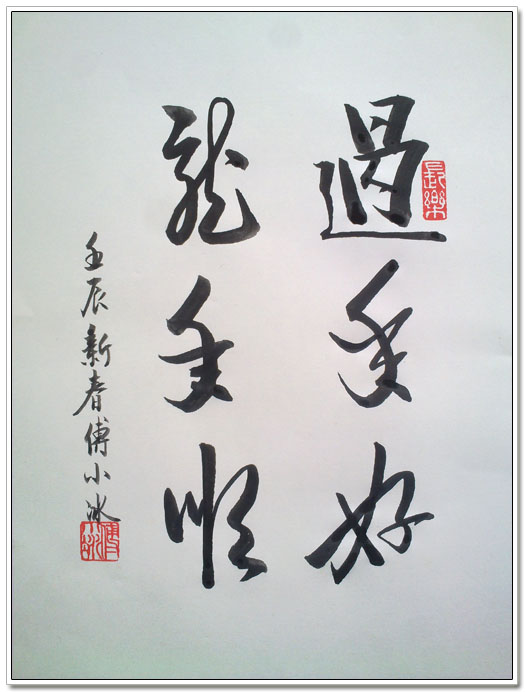 過年好
長樂
龍年順
壬辰新春傅小冰
傅小冰